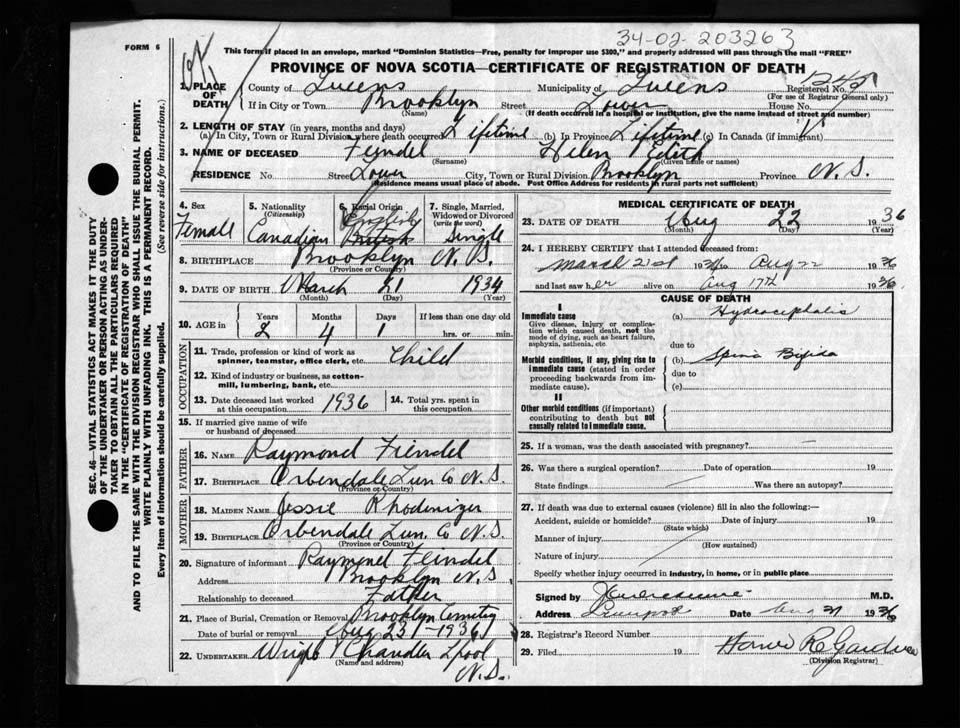 34-02-203263
FORM 6
This form if placed in an envelope, marked "Dominion Statistics—Free, penalty for improper use $300," and properly addressed will pass through the mail "FREE"
PROVINCE OF NOVA SCOTIA—CERTIFICATE OF REGISTRATION OF DEATH
1. PLACE OF DEATH County of Queens Municipality of Queens Registered No.
(For use of Registrar General only)
If in City or Town Brooklyn Street Lower House No.
(Name) (If death occurred in a hospital or institution, give the name instead of street and number)
2. LENGTH OF STAY (in years, months and days)
(a) In City, Town or Rural Division where death occurred Lifetime (b) In Province Lifetime (c) In Canada (if immigrant)
3. NAME OF DECEASED Feyndel Helen Edith
(Surname) (Given name or names)
RESIDENCE No. Street Lower City, Town or Rural Division Brooklyn Province N.S.
(Residence means usual place of abode. Post Office Address for residents in rural parts not sufficient)
4. Sex Female
5. Nationality (Citizenship) Canadian
6. Racial Origin English British
7. Single, Married, Widowed or Divorced (write the word) Single
8. BIRTHPLACE Brooklyn N.S.
(Province or Country)
9. DATE OF BIRTH March 21 1934
(Month) (Day) (Year)
10. AGE in Years Months Days If less than one day old
2 4 1 hrs. or min.
OCCUPATION
11. Trade, profession or kind of work as spinner, teamster, office clerk, etc. Child
12. Kind of industry or business, as cotton-mill, lumbering, bank, etc.
13. Date deceased last worked at this occupation 1936
14. Total yrs. spent in this occupation
15. If married give name of wife or husband of deceased
FATHER
16. NAME Raymond Feindel
17. BIRTHPLACE Lun Co N.S.
(Province or Country)
MOTHER
18. MAIDEN NAME Jessie Rhodenizer
19. BIRTHPLACE Lun. Co N.S.
(Province or Country)
20. Signature of informant Raymond Feindel
Address Brooklyn N.S.
Relationship to deceased Father
21. Place of Burial, Cremation or Removal Brooklyn Cemetry
Date of burial or removal Aug 23 - 1936
22. UNDERTAKER Chandler Lpool
(Name and address) N.S.
MEDICAL CERTIFICATE OF DEATH
23. DATE OF DEATH Aug 22 1936
(Month) (Day) (Year)
24. I HEREBY CERTIFY that I attended deceased from:
March 21st 1934 to Aug 22 1936
and last saw her alive on Aug 17th 1936
CAUSE OF DEATH
I
Immediate cause (a) Hydrocephalis
Give disease, injury or complication which caused death, not the mode of dying, such as heart failure, asphyxia, asthenia, etc.
due to
Morbid conditions, if any, giving rise to immediate cause (stated in order proceeding backwards from immediate cause). (b) Spina Bifida
due to
(c)
II
Other morbid conditions (if important) contributing to death but not causally related to immediate cause.
25. If a woman, was the death associated with pregnancy? —
26. Was there a surgical operation? Date of operation 19
State findings Was there an autopsy?
27. If death was due to external causes (violence) fill in also the following:—
Accident, suicide or homicide? Date of injury 19
(State which)
Manner of injury
(How sustained)
Nature of injury
Specify whether injury occurred in industry, in home, or in public place
Signed by M.D.
Address Date Aug 1936
28. Registrar's Record Number
29. Filed 19
(Division Registrar)
SEC. 46—VITAL STATISTICS ACT MAKES IT THE DUTY OF THE UNDERTAKER OR PERSON ACTING AS UNDERTAKER TO OBTAIN ALL THE PARTICULARS REQUIRED IN THE "CERTIFICATE OF REGISTRATION OF DEATH"
AND TO FILE THE SAME WITH THE DIVISION REGISTRAR WHO SHALL ISSUE THE BURIAL PERMIT.
WRITE PLAINLY WITH UNFADING INK. THIS IS A PERMANENT RECORD.
Every item of information should be carefully supplied. (See reverse side for instructions.)